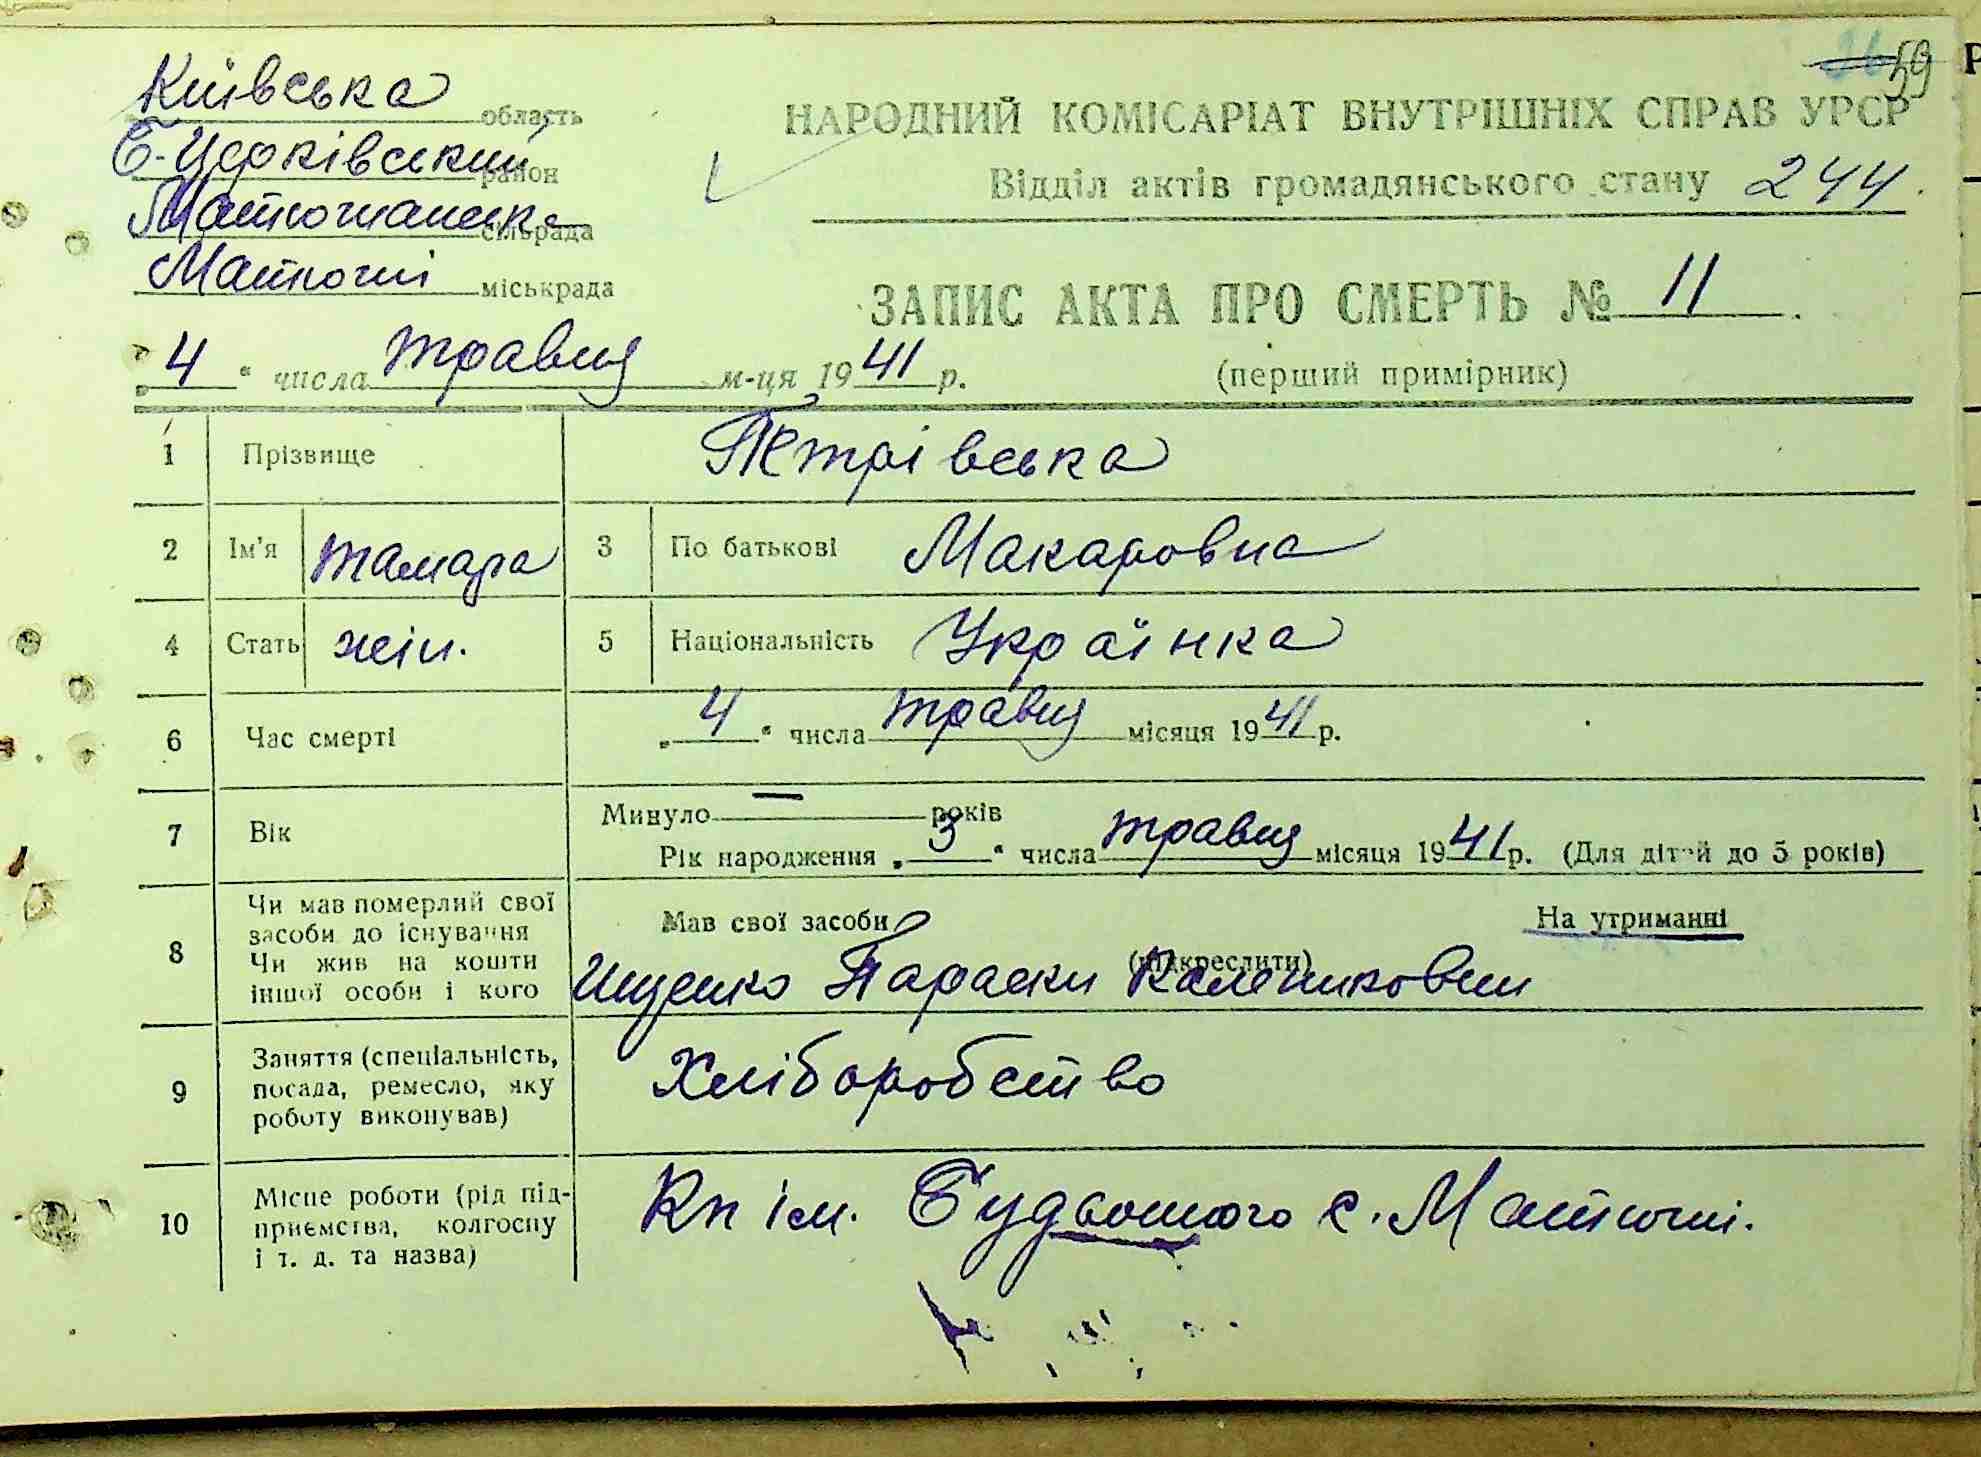 59
Київська область
Б-Церківський район
Матюшанська сільрада
Матюші міськрада
НАРОДНИЙ КОМІСАРІАТ ВНУТРІШНІХ СПРАВ УРСР
Відділ актів громадянського стану 244.
ЗАПИС АКТА ПРО СМЕРТЬ № 11.
(перший примірник)
„4“ числа травня м-ця 1941 р.
1 Прізвище Петрівська
2 Ім'я Тамара 3 По батькові Макаровна
4 Стать жін. 5 Національність Українка
6 Час смерті „4“ числа травня місяця 1941 р.
7 Вік Минуло — років
Рік народження „3“ числа травня місяця 1941 р. (Для дітей до 5 років)
8 Чи мав померлий свої засоби до існування Чи жив на кошти іншої особи і кого
Мав свої засоби На утриманні
(підкреслити)
Ищенко Параски Калениковни
9 Заняття (спеціальність, посада, ремесло, яку роботу виконував) Хліборобство
10 Місце роботи (рід підприємства, колгоспу і т. д. та назва) Кп ім. Будьоного с. Матюші.